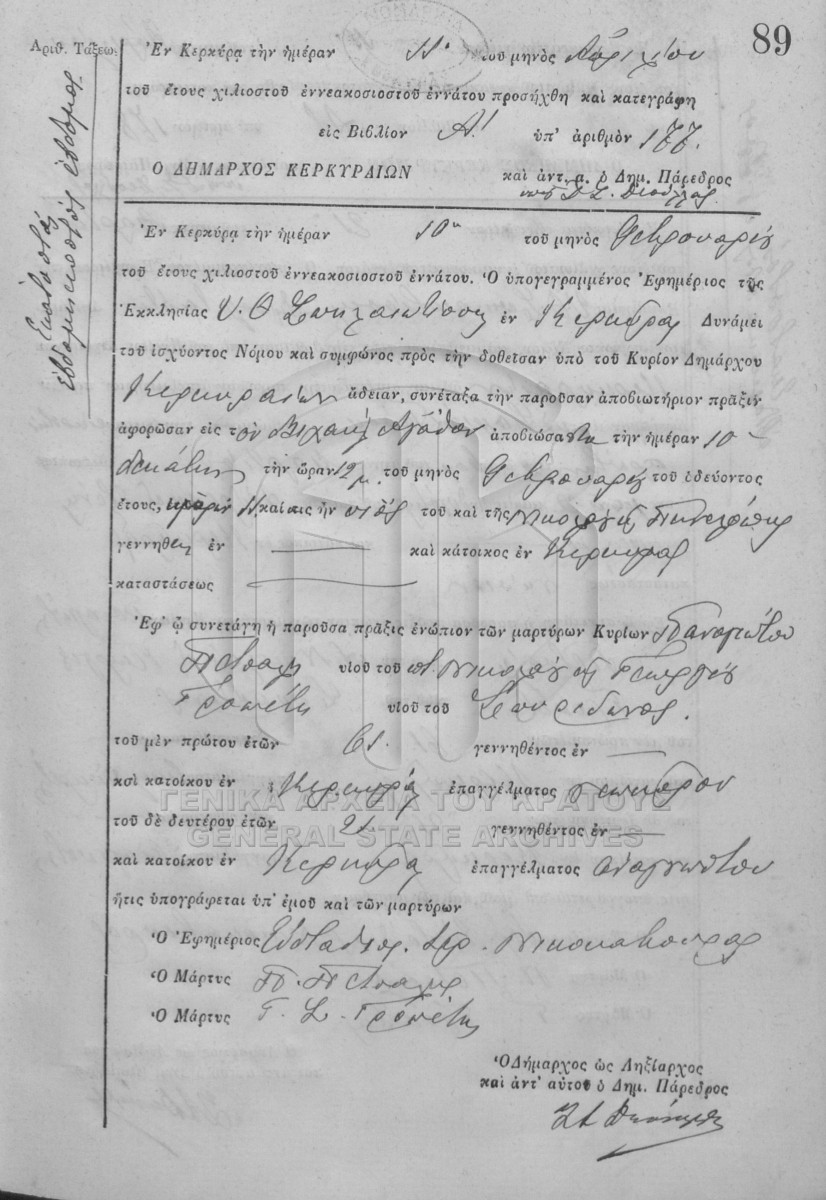 89
Αριθ. Τάξεως
Ἑκατοστὸς
ἑβδομηκοστὸς ἕβδομος
Ἐν Κερκύρᾳ τὴν ἡμέραν 11η τοῦ μηνὸς Ἀπριλίου
τοῦ ἔτους χιλιοστοῦ ἐννεακοσιοστοῦ ἐννάτου προσήχθη καὶ κατεγράφη
εἰς Βιβλίον Α! ὑπ' ἀριθμὸν 177.
Ο ΔΗΜΑΡΧΟΣ ΚΕΡΚΥΡΑΙΩΝ καὶ ἀντ. α. ὁ Δημ. Πάρεδρος
Ἐν Κερκύρᾳ τὴν ἡμέραν 10η τοῦ μηνὸς Φεβρουαρίου
τοῦ ἔτους χιλιοστοῦ ἐννεακοσιοστοῦ ἐννάτου. Ὁ ὑπογεγραμμένος Ἐφημέριος τῆς
Ἐκκλησίας Υ. Θ Σπηλαιωτίσσης ἐν Κερκύρᾳ Δυνάμει
τοῦ ἰσχύοντος Νόμου καὶ συμφώνος πρὸς τὴν δοθεῖσαν ὑπὸ τοῦ Κυρίου Δημάρχου
Κερκυραίων ἄδειαν, συνέταξα τὴν παροῦσαν ἀποβιωτήριον πρᾶξιν
ἀφορῶσαν εἰς τὸν ἀποβιώσαντα τὴν ἡμέραν 10
δεκάτην τὴν ὥραν 12 μ. τοῦ μηνὸς Φεβρουαρίου τοῦ ὁδεύοντος
ἔτους, 11 καὶ ἦν υἱὸς τοῦ καὶ τῆς Νικολάου Πηνελόπης
γεννηθεὶς ἐν — καὶ κάτοικος ἐν Κερκύρᾳ
καταστάσεως —
Ἐφ' ᾧ συνετάγη ἡ παροῦσα πρᾶξις ἐνώπιον τῶν μαρτύρων Κυρίων Παναγιώτου
Πετσάλη υἱοῦ τοῦ ποτὲ Νικολάου Γεωργίου
υἱοῦ τοῦ Σπυρίδωνος.
τοῦ μὲν πρώτου ἐτῶν 61 γεννηθέντος ἐν —
κσὶ κατοίκου ἐν Κερκύρᾳ ἐπαγγέλματος
τοῦ δὲ δευτέρου ἐτῶν 21 γεννηθέντος ἐν —
καὶ κατοίκου ἐν Κερκύρᾳ ἐπαγγέλματος ἀναγνώστου
ἥτις ὑπογράφεται ὑπ' ἐμοῦ καὶ τῶν μαρτύρων
Ὁ Ἐφημέριος Εὐστάθιος
Ὁ Μάρτυς Π. Πετσάλης
Ὁ Μάρτυς Γ. Σ.
Ὁ Δήμαρχος ὡς Ληξίαρχος
καὶ ἀντ' αὐτοῦ ὁ Δημ. Πάρεδρος
ΓΕΝΙΚΑ ΑΡΧΕΙΑ ΤΟΥ ΚΡΑΤΟΥΣ
GENERAL STATE ARCHIVES